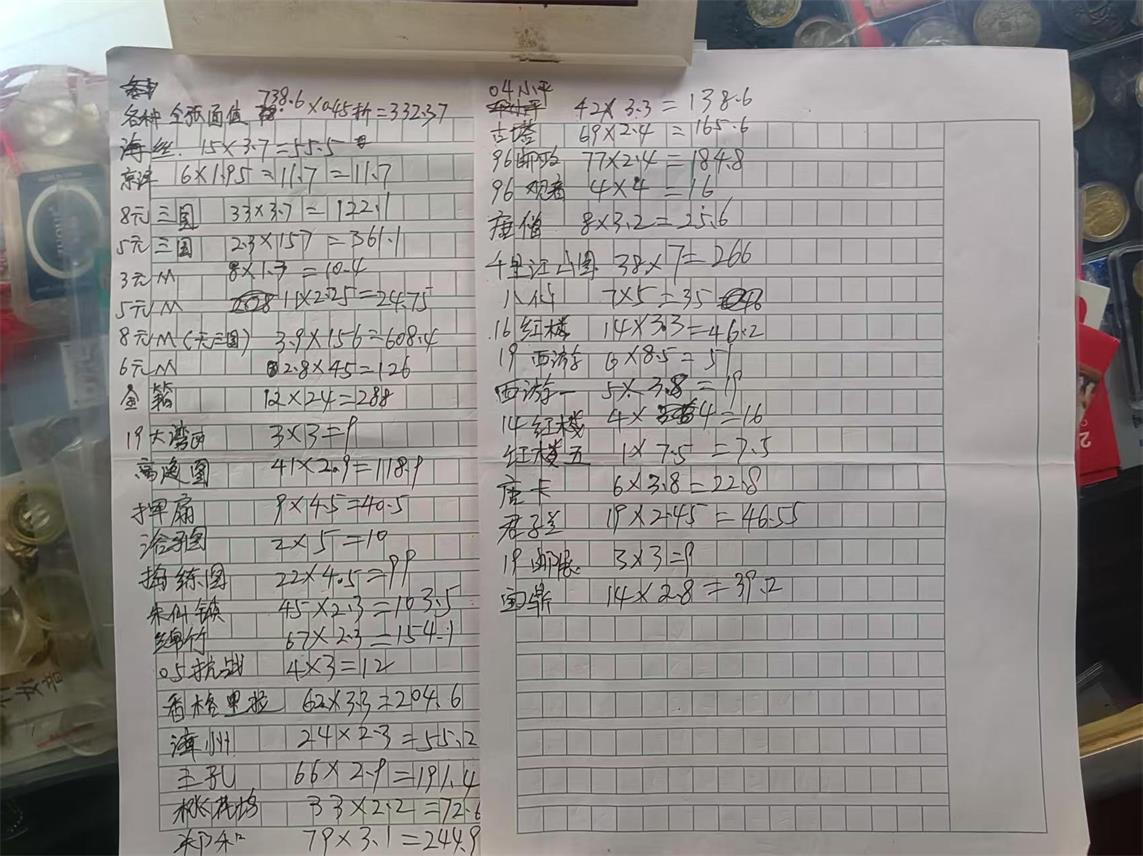 各种全张面值 738.6×0.45折=332.37
海丝. 15×3.7=55.5
京津 16×1.95=11.7=11.7
8元三国 33×3.7=122.1
5元三国 2.3×157=361.1
3元M 8×1.3=10.4
5元M 11×2.25=24.75
8元M(无三国) 3.9×156=608.4
6元M 2.8×45=126
12×24=288
19大湾区 3×3=9
高逸图 41×2.9=118.9
挥扇 9×4.5=40.5
浴马图 2×5=10
捣练图 22×4.5=99
朱仙镇 45×2.3=103.5
绵竹 67×2.3=154.1
05抗战 4×3=12
香格里拉 62×3.3=204.6
漳州 24×2.3=55.2
王孔 66×2.9=191.4
桃花坞 33×2.2=72.6
79×3.1=244.9
04小平 42×3.3=138.6
古塔 69×2.4=165.6
96邮政 77×2.4=184.8
96观音 4×4=16
唐僧 8×3.2=25.6
千里江山图 38×7=266
八仙 7×5=35
16红楼 14×3.3=46.2
19西游 6×8.5=51
西游一 5×3.8=19
14红楼 4×4=16
红楼五 1×7.5=7.5
唐卡 6×3.8=22.8
君子兰 19×2.45=46.55
19邮展 3×3=9
宝鼎 14×2.8=39.2